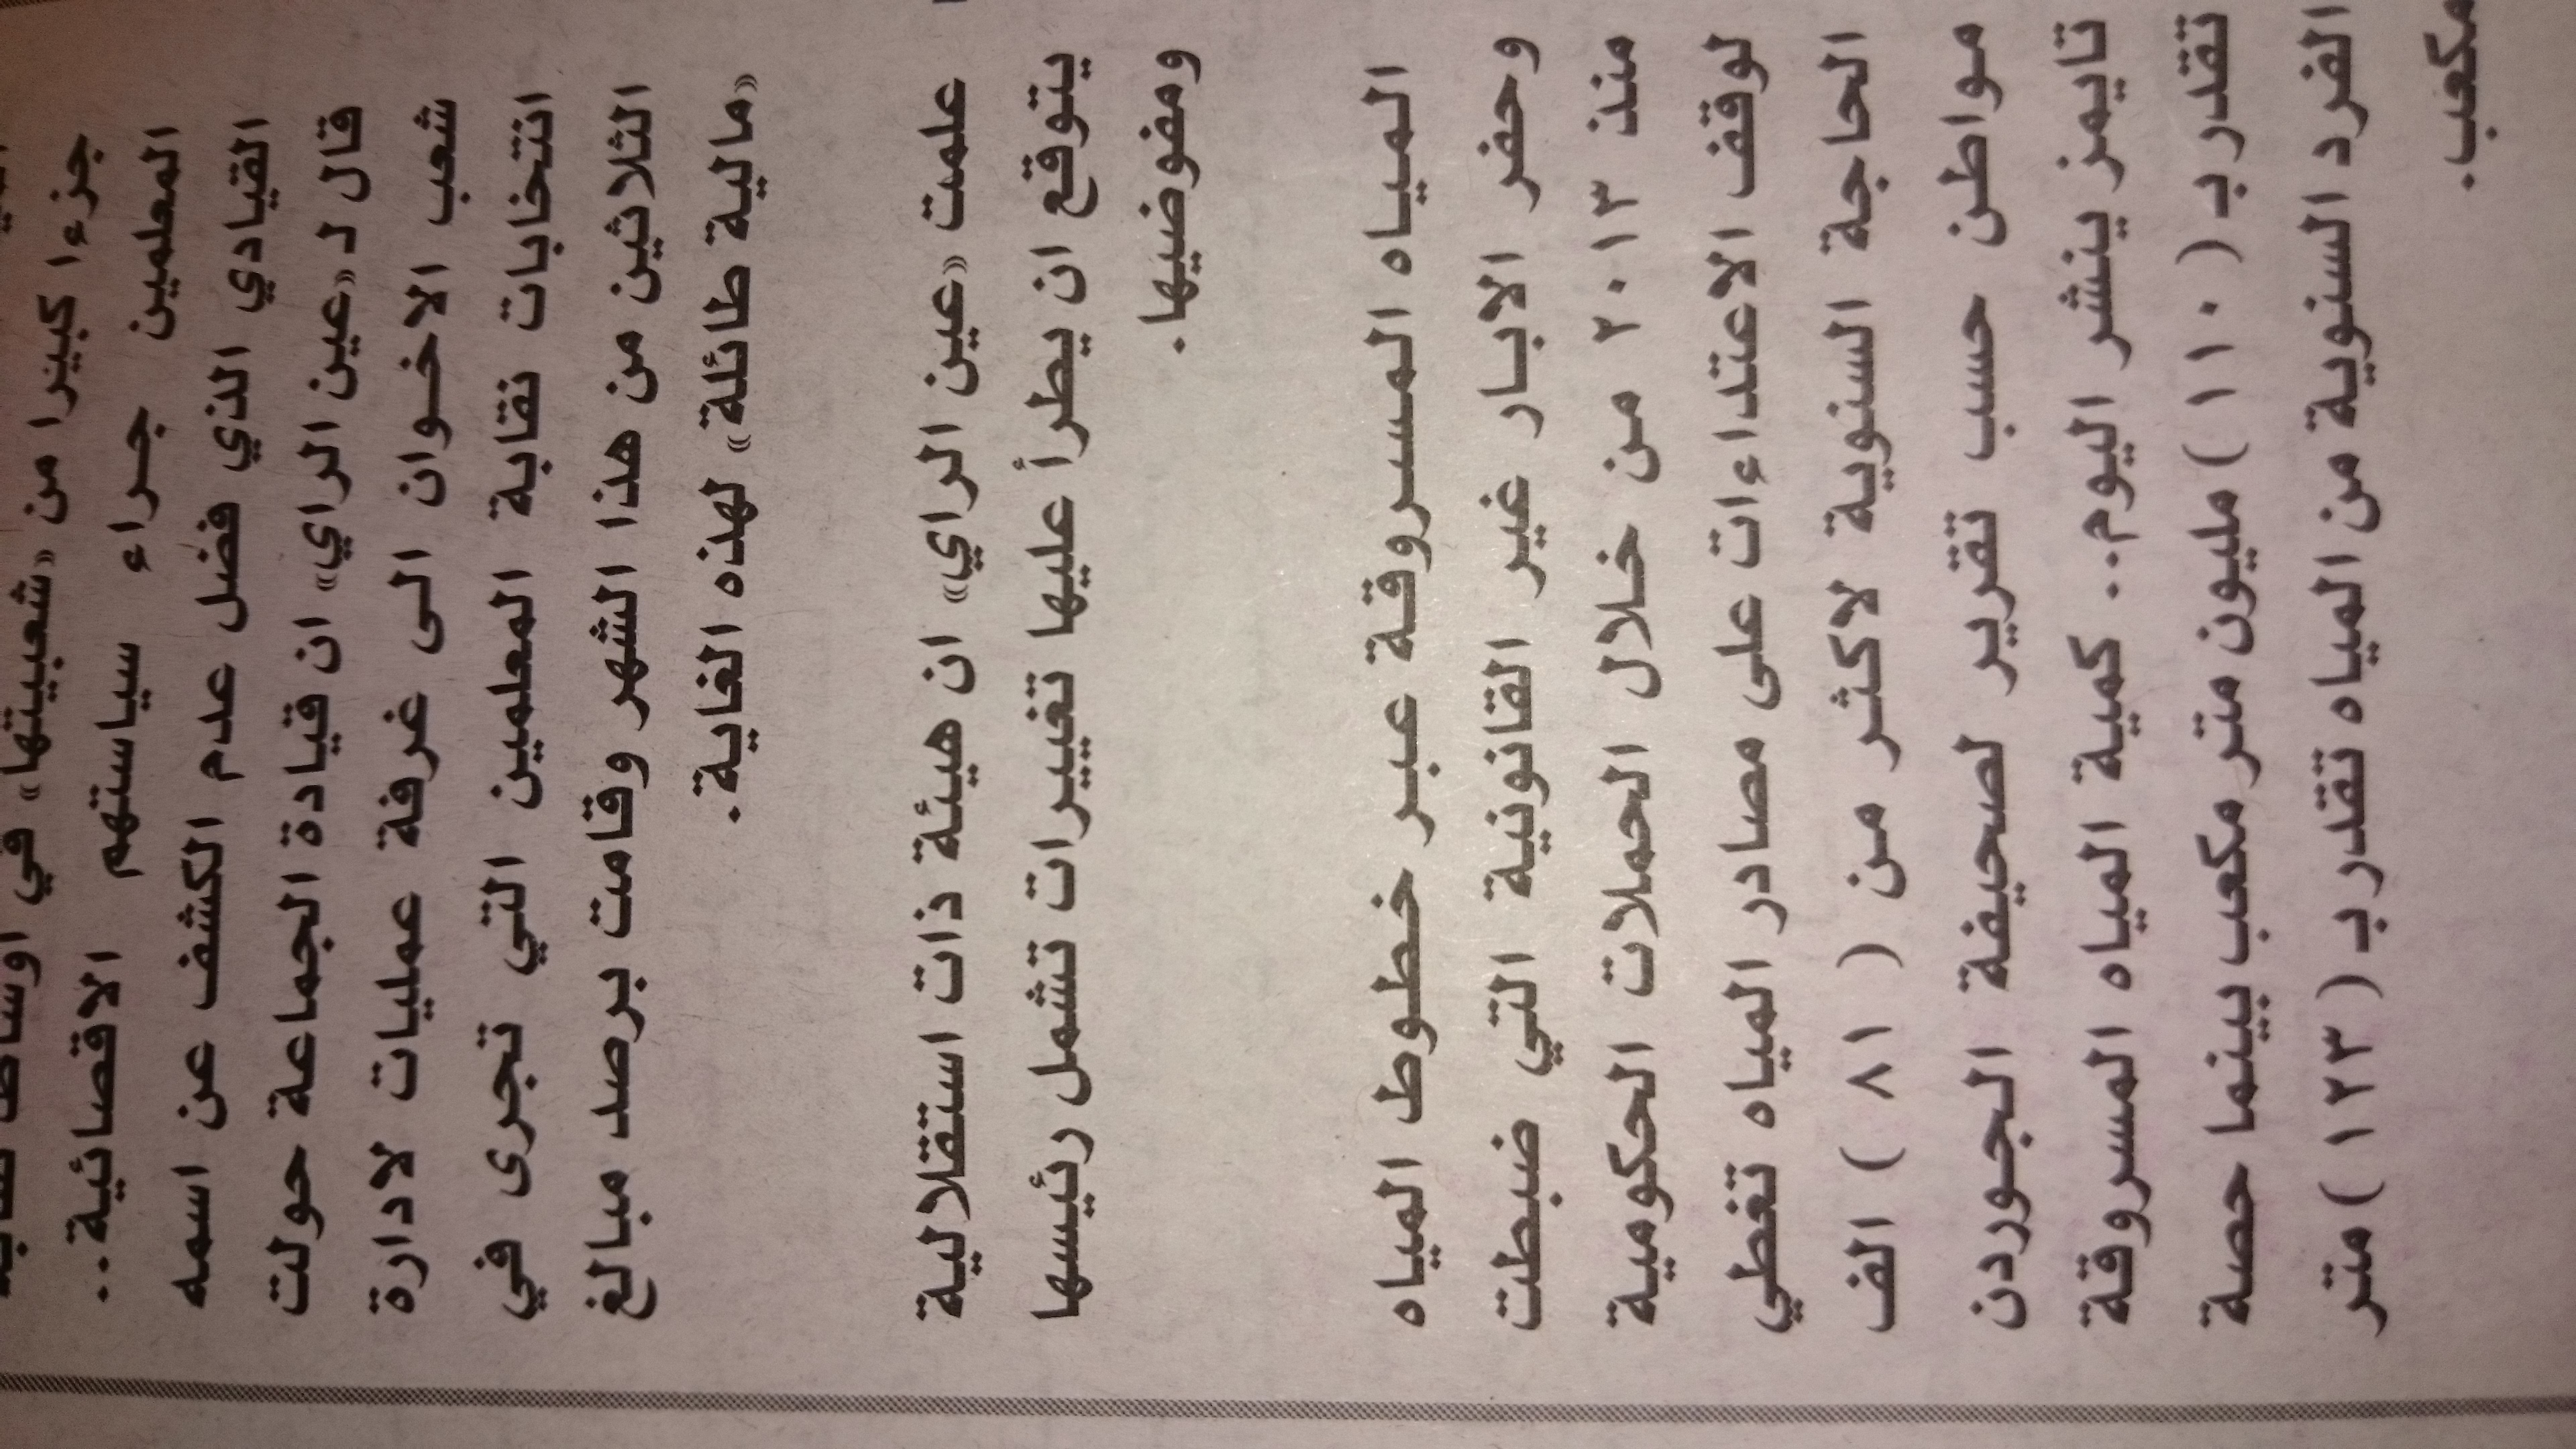 جزءا كبيرا من «شعبيتها» في اوساط
المعلمين جراء سياستهم الاقصائية..
القيادي الذي فضل عدم الكشف عن اسمه
قال لـ «عين الراي» ان قيادة الجماعة حولت
شعب الاخوان الى غرفة عمليات لادارة
انتخابات نقابة المعلمين التي تجرى في
الثلاثين من هذا الشهر وقامت برصد مبالغ
«مالية طائلة» لهذه الغاية.
علمت «عين الراي» ان هيئة ذات استقلالية
يتوقع ان يطرأ عليها تغييرات تشمل رئيسها
ومفوضيها.
المياه المسروقة عبر خطوط المياه
وحفر الابار غير القانونية التي ضبطت
منذ ٢٠١٣ من خلال الحملات الحكومية
لوقف الاعتداءات على مصادر المياه تغطي
الحاجة السنوية لاكثر من ( ٨١ ) الف
مواطن حسب تقرير لصحيفة الجوردن
تايمز ينشر اليوم.. كمية المياه المسروقة
تقدر بـ (١١٠) مليون متر مكعب بينما حصة
الفرد السنوية من المياه تقدر بـ (١٢٣) متر
مكعب.